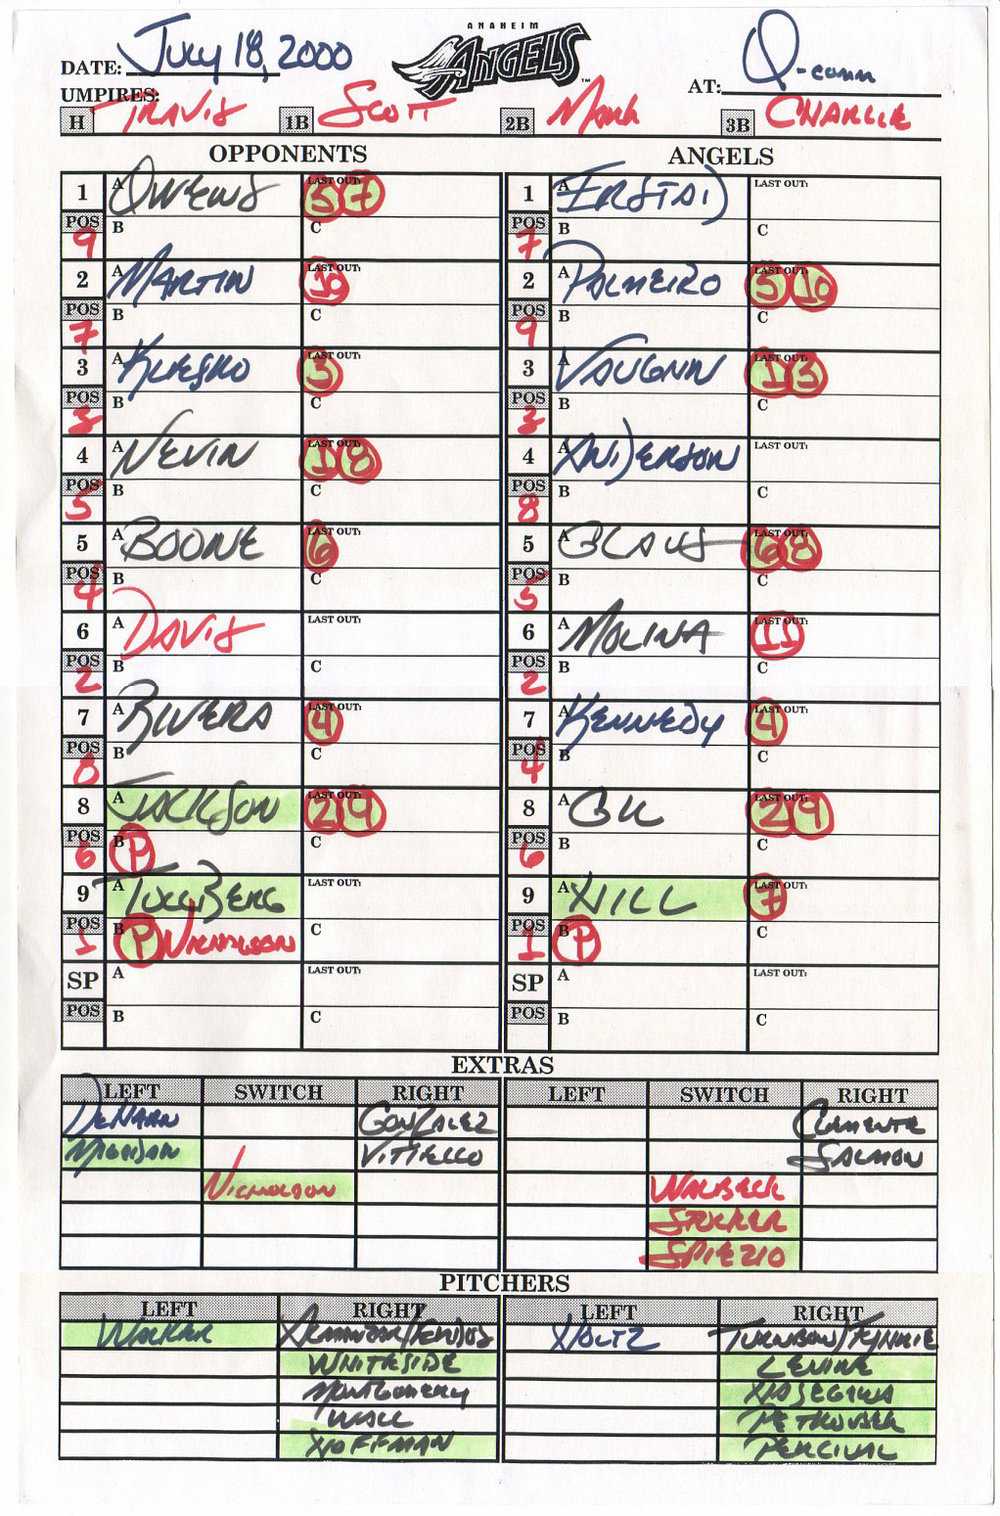 ANAHEIM
ANGELS
DATE: July 18, 2000 AT: Q-comm
UMPIRES:
H TRAVIS 1B SCOTT 2B MARK 3B CHARLIE
OPPONENTS ANGELS
1 A OWENS LAST OUT: 5 7 1 A ERSTAD LAST OUT:
POS 9 B C POS 7 B C
2 A MARTIN LAST OUT: 10 2 A PALMEIRO LAST OUT: 5 10
POS 7 B C POS 9 B C
3 A KLESKO LAST OUT: 3 3 A VAUGHN LAST OUT: 1 3
POS 3 B C POS 3 B C
4 A NEVIN LAST OUT: 1 8 4 A ANDERSON LAST OUT:
POS 5 B C POS 8 B C
5 A BOONE LAST OUT: 6 5 A GLAUS LAST OUT: 6 8
POS 4 B C POS 5 B C
6 A DAVIS LAST OUT: 6 A MOLINA LAST OUT: 11
POS 2 B C POS 2 B C
7 A RIVERA LAST OUT: 4 7 A KENNEDY LAST OUT: 4
POS 8 B C POS 4 B C
8 A JACKSON LAST OUT: 2 9 8 A GIL LAST OUT: 2 9
POS 6 B P C POS 6 B C
9 A TOLLBERG LAST OUT: 9 A HILL LAST OUT: 7
POS 1 B P NICHOLSON C POS 1 B P C
SP A LAST OUT: SP A LAST OUT:
POS B C POS B C
EXTRAS
LEFT SWITCH RIGHT LEFT SWITCH RIGHT
DeHAAN GONZALEZ CLEMENTE
MAGADAN VITIELLO SALMON
NICHOLSON WALBECK
STOCKER
SPIEZIO
PITCHERS
LEFT RIGHT LEFT RIGHT
WALKER ALMANZAR/ HOLTZ TURNBOW/
WHITESIDE LEVINE
MONTGOMERY HASEGAWA
WALL PETKOVSEK
HOFFMAN PERCIVAL